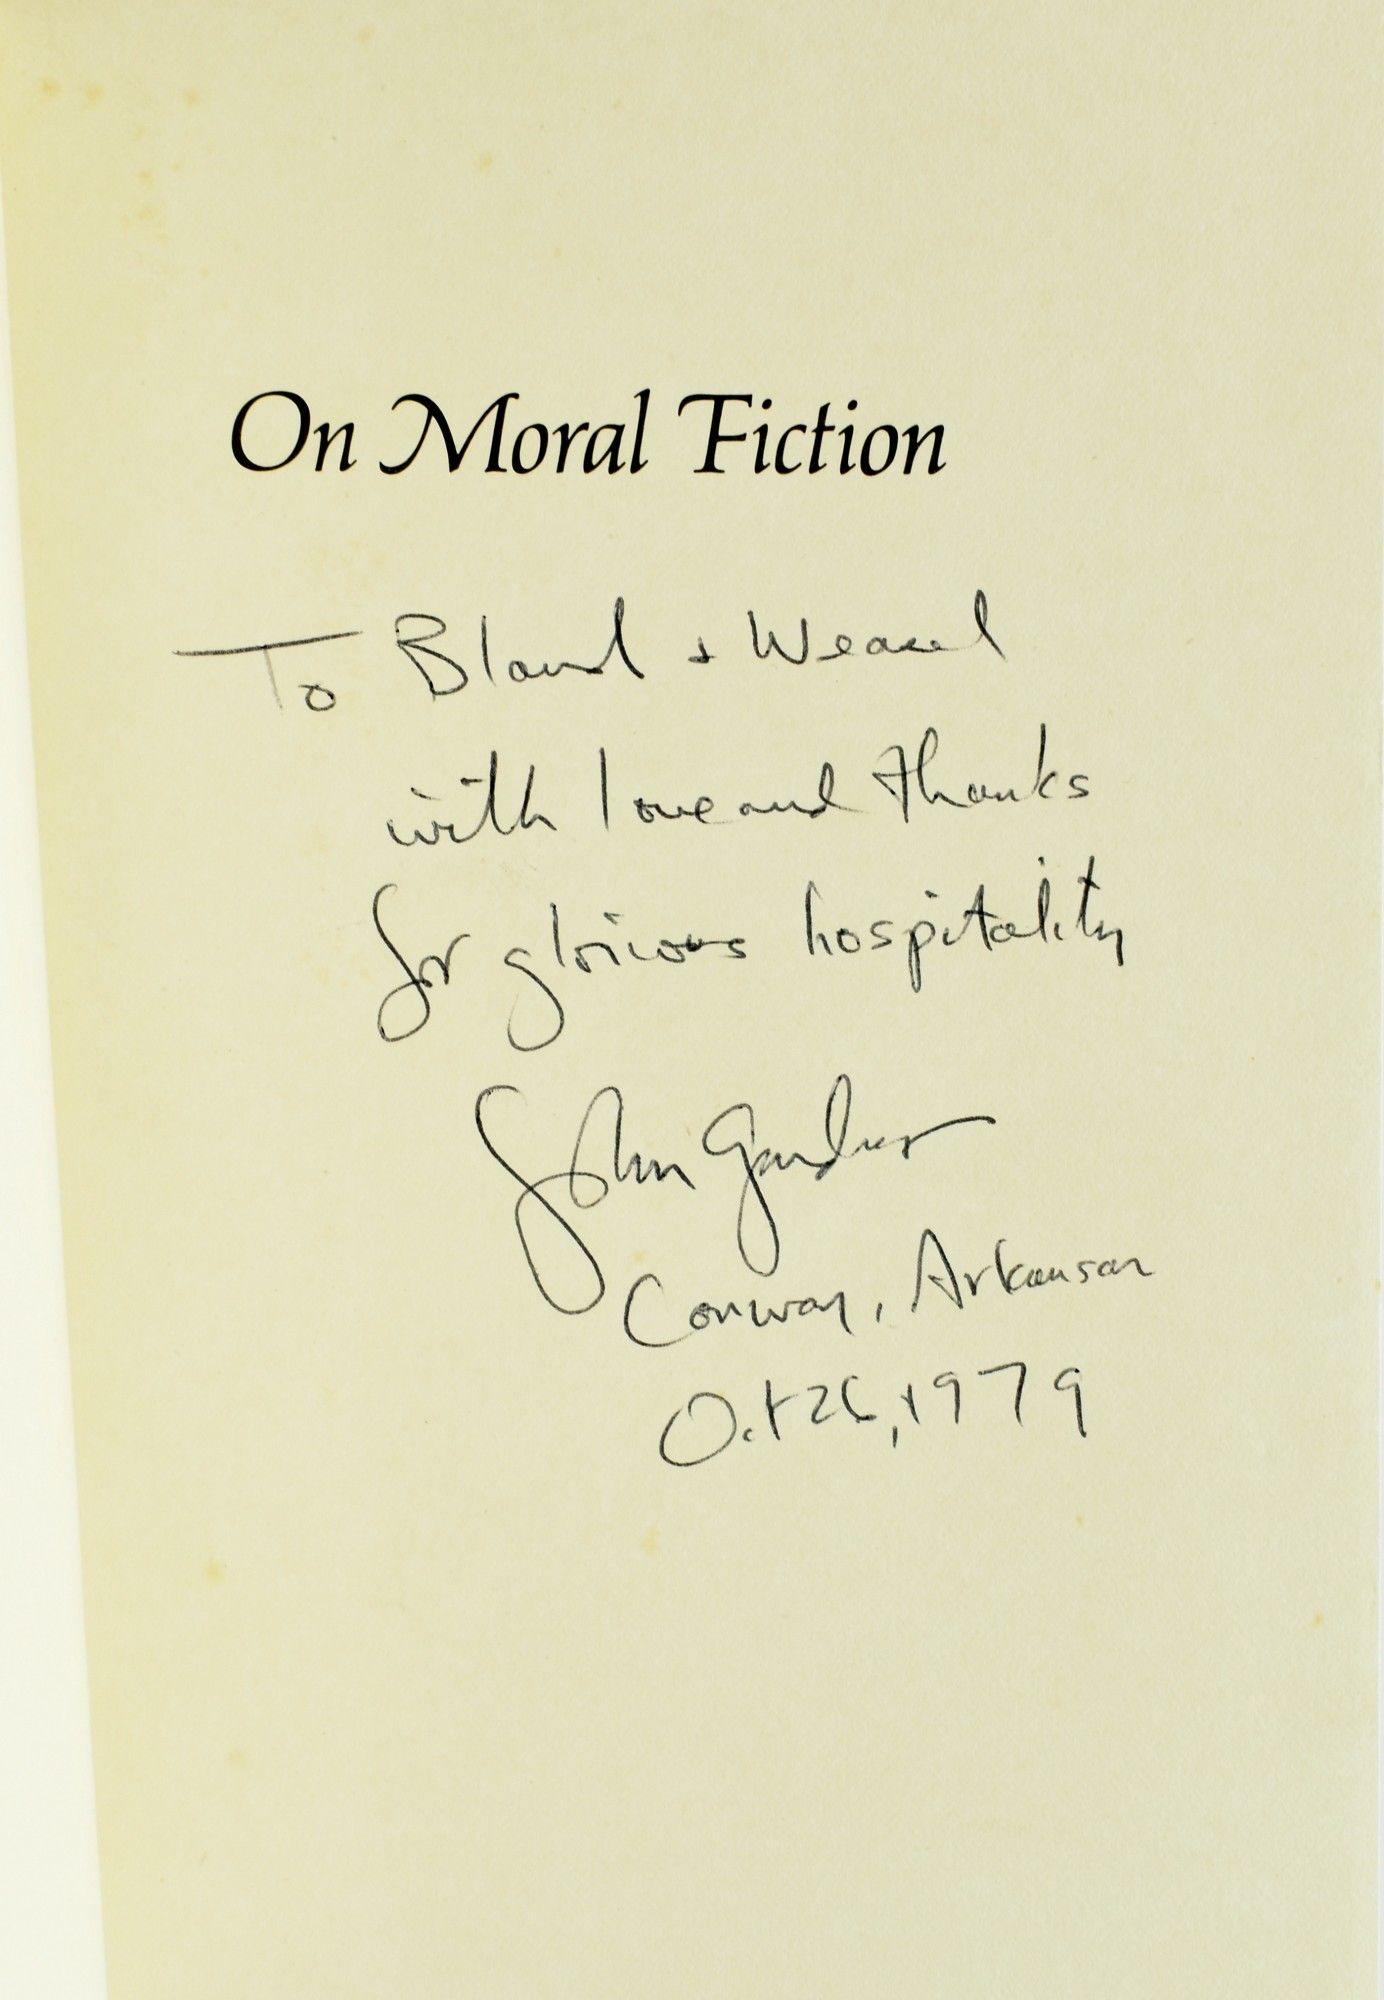 On Moral Fiction
To Bland + Weasel
with love and thanks
for glorious hospitality
John Gardner
Conway, Arkansas
Oct 26, 1979